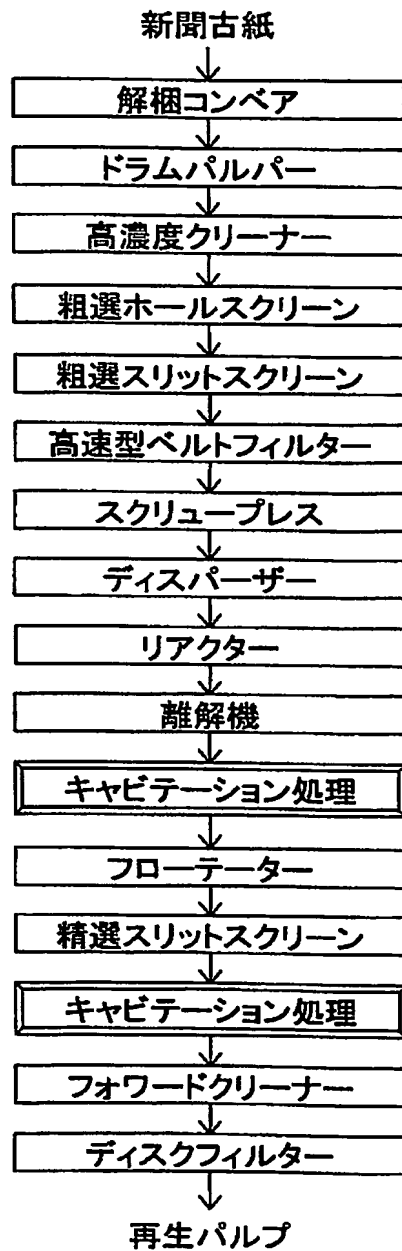 新聞古紙
解梱コンベア
ドラムパルパー
高濃度クリーナー
粗選ホールスクリーン
粗選スリットスクリーン
高速型ベルトフィルター
スクリュープレス
ディスパーザー
リアクター
離解機
キャビテーション処理
フローテーター
精選スリットスクリーン
キャビテーション処理
フォワードクリーナー
ディスクフィルター
再生パルプ